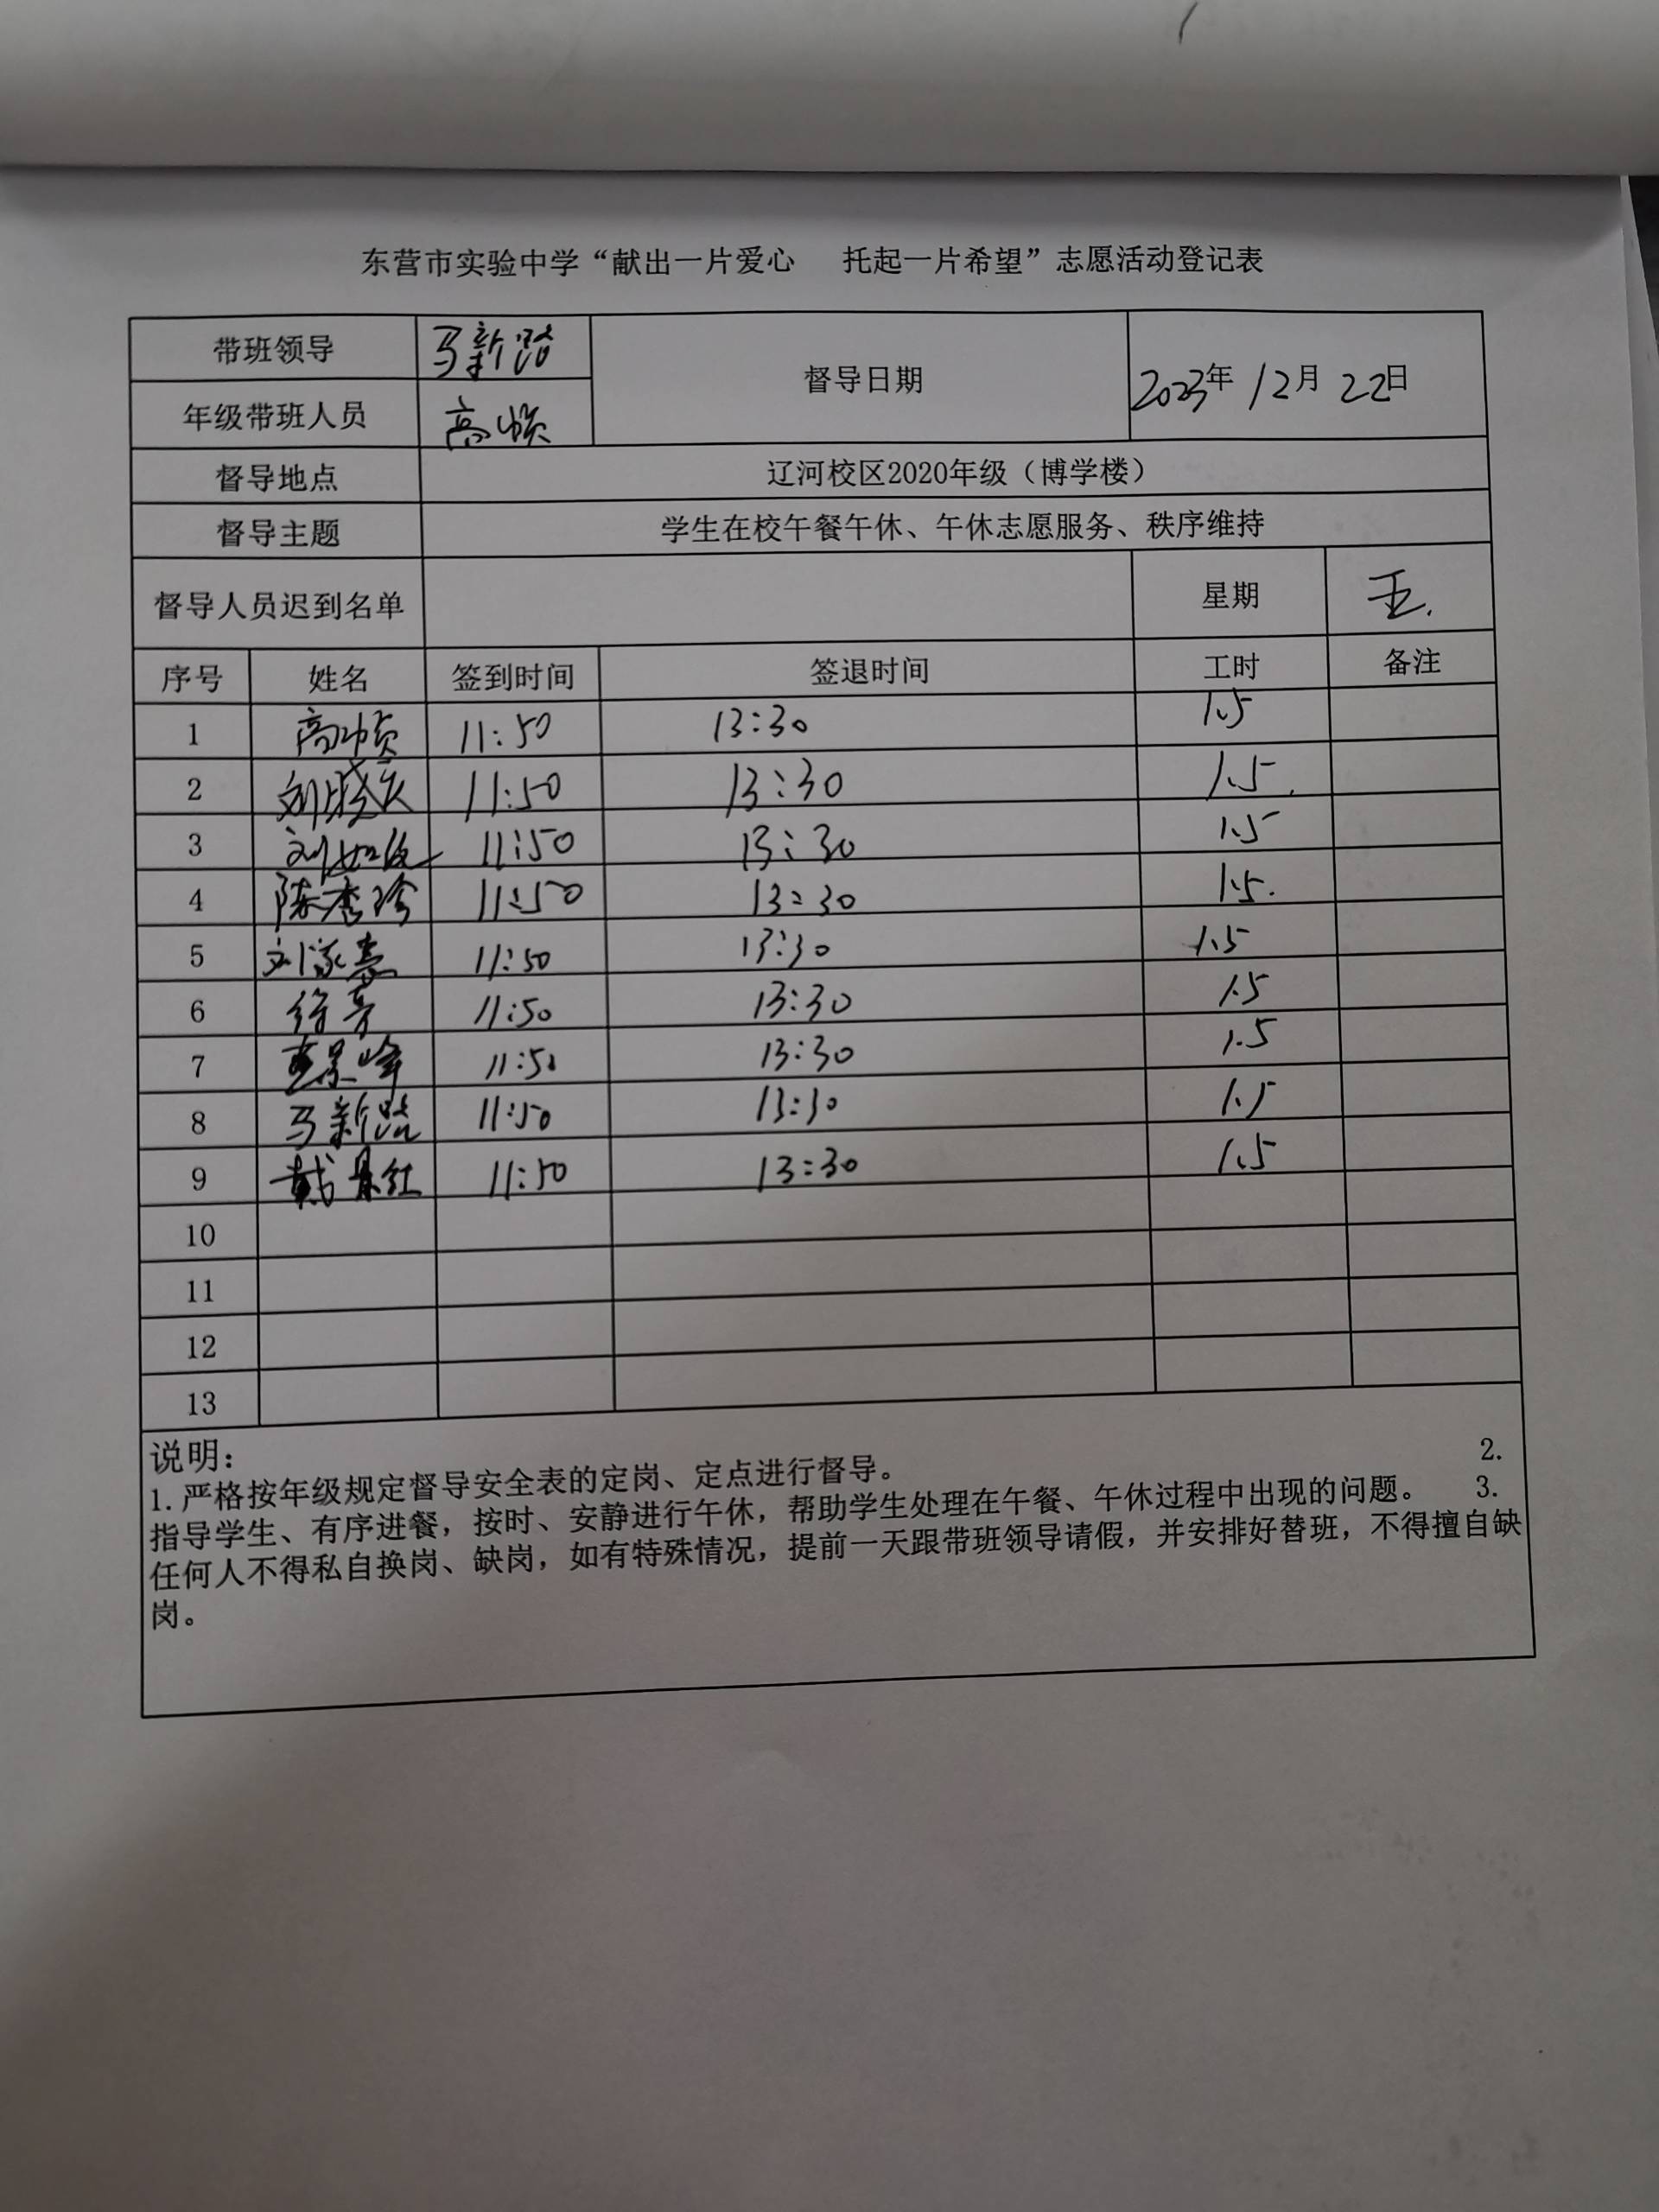 东营市实验中学“献出一片爱心 托起一片希望”志愿活动登记表
带班领导 马新路 督导日期 2023年 12月 22日
年级带班人员 高
督导地点 辽河校区2020年级（博学楼）
督导主题 学生在校午餐午休、午休志愿服务、秩序维持
督导人员迟到名单 星期 五.
序号 姓名 签到时间 签退时间 工时 备注
1 高 11:50 13:30 1.5
2 刘 11:50 13:30 1.5
3 刘如 11:50 13:30 1.5
4 陈秀珍 11:50 13:30 1.5.
5 刘 11:50 13:30 1.5
6 徐 11:50 13:30 1.5
7 景峰 11:50 13:30 1.5
8 马新路 11:50 13:30 1.5
9 戴红 11:50 13:30 1.5
10
11
12
13
说明：
1.严格按年级规定督导安全表的定岗、定点进行督导。 2.
指导学生、有序进餐，按时、安静进行午休，帮助学生处理在午餐、午休过程中出现的问题。 3.
任何人不得私自换岗、缺岗，如有特殊情况，提前一天跟带班领导请假，并安排好替班，不得擅自缺
岗。